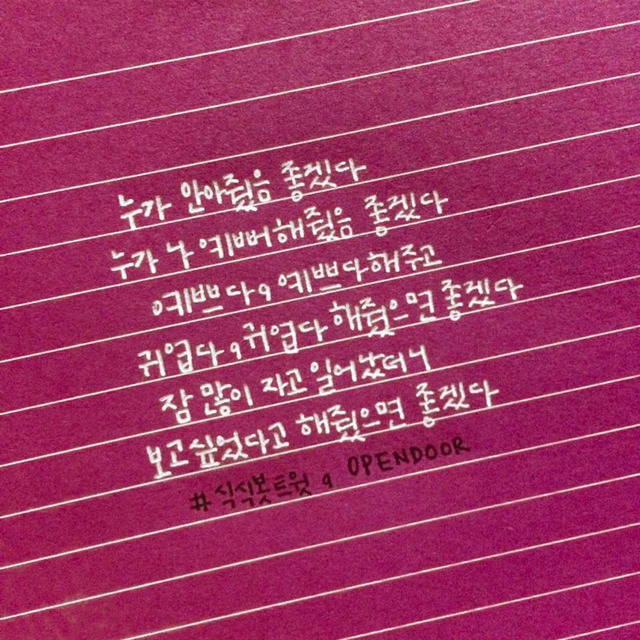 누가 안아줬음 좋겠다
누가 나 예뻐해줬음 좋겠다
예쁘다, 예쁘다해주고
귀엽다, 귀엽다 해줬으면 좋겠다
잠 많이 자고 일어났더니
보고싶었다고 해줬으면 좋겠다
#식식봇트윗, OPENDOOR